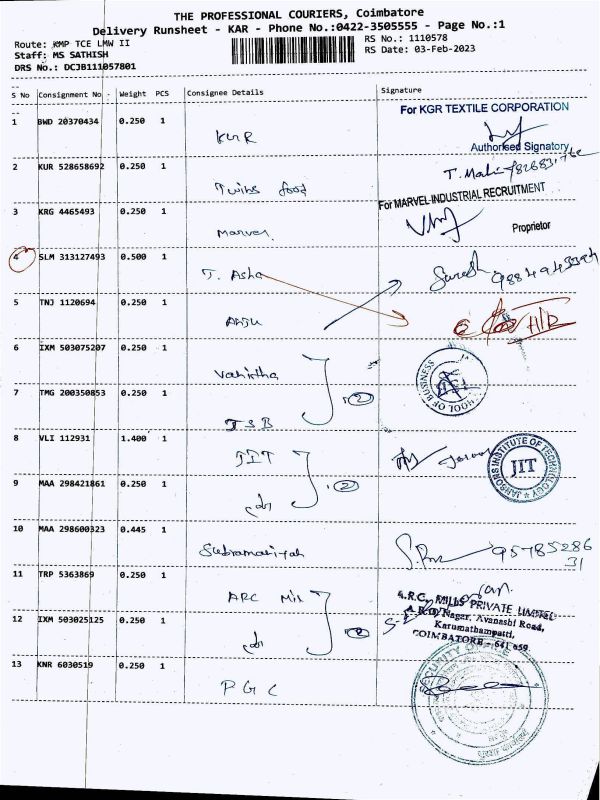 THE PROFESSIONAL COURIERS, Coimbatore
Delivery Runsheet - KAR - Phone No.:0422-3505555 - Page No.:1
Route: RMP TCE LMW II
RS No.: 1110578
Staff: MS SATHISH
RS Date: 03-Feb-2023
DRS No.: DCJB111057801
S No Consignment No Weight PCS Consignee Details Signature
For KGR TEXTILE CORPORATION
1 BWD 20370434 0.250 1 KGR
Authorised Signatory
2 KUR 528658692 0.250 1 Twins food
For MARVEL INDUSTRIAL RECRUITMENT
3 KRG 4465493 0.250 1 Marvel
Proprietor
4 SLM 313127493 0.500 1 T. Asha
Suresh
5 TNJ 1120694 0.250 1
6 IXM 503075207 0.250 1
SCHOOL OF BUSINESS
7 TMG 200350853 0.250 1 2
8 VLI 112931 1.400 1 JIT
JANSONS INSTITUTE OF TECHNOLOGY
JIT
9 MAA 298421861 0.250 1 2
10 MAA 298600323 0.445 1 Subramaniyah
9578528631
11 TRP 5363869 0.250 1 ARC Mil
A.R.C. MILLS PRIVATE LIMITED
Nagar, Avanashi Road,
12 IXM 503025125 0.250 1 2
Karumathampatti,
COIMBATORE - 641 659.
13 KNR 6030519 0.250 1 PGC
SECURITY OFFICE